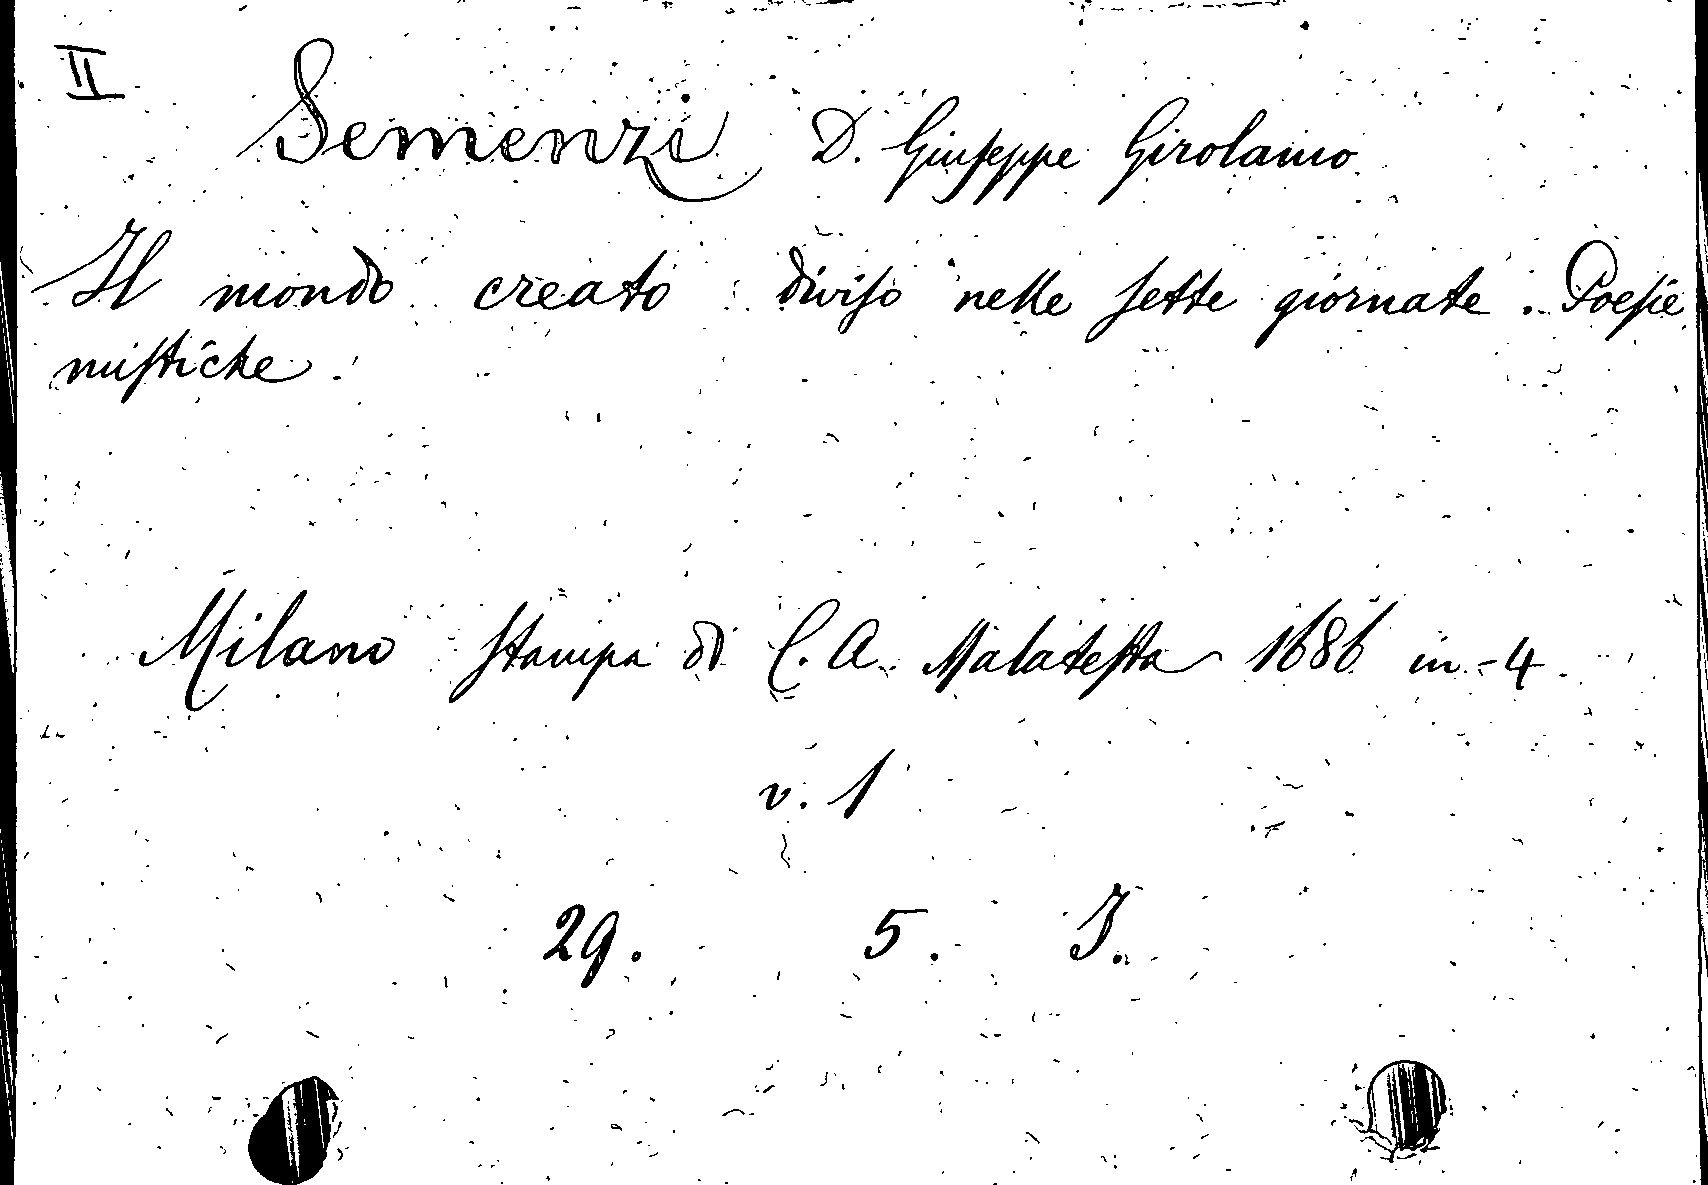 II
Semenzi D. Giuseppe Girolamo
Il mondo creato diviso nelle sette giornate. Poesie
mistiche.
Milano stampa di C. A. Malatesta 1686 in-4
v. 1
29. 5. I.